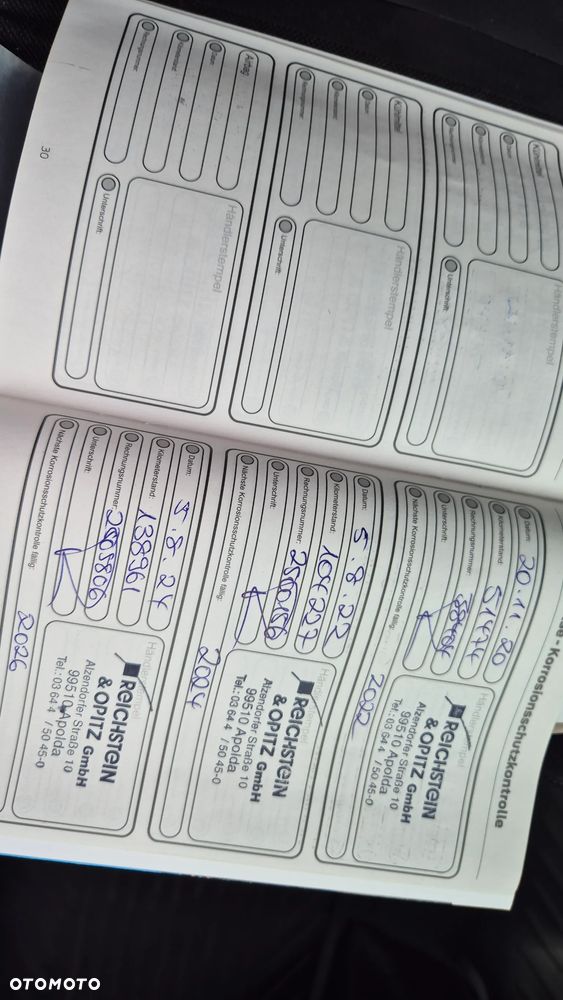 Datum:
Unterschrift:
Händlerstempel
Datum:
Kilometerstand:
Rechnungsnummer:
Unterschrift:
Händlerstempel
Airbag
Datum:
Kilometerstand:
Rechnungsnummer:
Unterschrift:
Händlerstempel
30
- Korrosionsschutzkontrolle
Datum: 20.11.20
Kilometerstand: 51474
Rechnungsnummer:
Unterschrift:
Nächste Korrosionsschutzkontrolle fällig: 2022
REICHSTEIN
& OPITZ GmbH
Alzendorfer Straße 10
99510 Apolda
Tel.: 03644 / 50 45-0
Datum: 5.8.22
Kilometerstand: 104227
Rechnungsnummer:
Unterschrift:
Nächste Korrosionsschutzkontrolle fällig: 2024
REICHSTEIN
& OPITZ GmbH
Alzendorfer Straße 10
99510 Apolda
Tel.: 03644 / 50 45-0
Datum: 5.8.24
Kilometerstand: 138961
Rechnungsnummer:
Unterschrift:
Nächste Korrosionsschutzkontrolle fällig: 2026
REICHSTEIN
& OPITZ GmbH
Alzendorfer Straße 10
99510 Apolda
Tel.: 03644 / 50 45-0
OTOMOTO